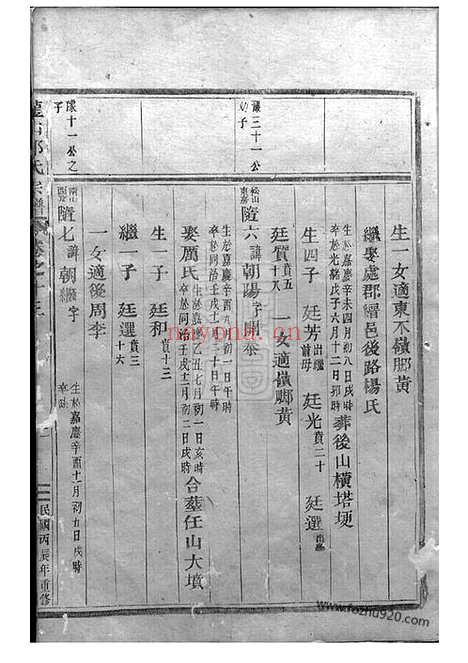 生一女適東不嶺鄭黃
繼娶處郡縉邑後路楊氏
生於嘉慶辛未四月初八日戌時
卒於光緒戊子六月十二日卯時
葬後山橫塔埂
生四子 廷芳出繼前母 廷光賁二十 廷選出繼
廷質賁五十八 一女適嶺鄭黃
隨六諱朝陽字開泰
生於嘉慶辛酉九月初一日辰時
卒於同治壬戌十二月二十日午時
娶厲氏
生於嘉慶乙丑七月初一日亥時
卒於同治壬戌十二月初二日戌時
合葬任山大墳
生一子 廷和賁十三
繼一子 廷選賁三十六
一女適後周李
隨七諱朝繼字
生於嘉慶辛酉十一月初五日戌時
卒缺
豫三十一公幼子
豫十一公之子
氏宗譜
民國丙辰年重修
nayona.cn
www.fozhu920.com